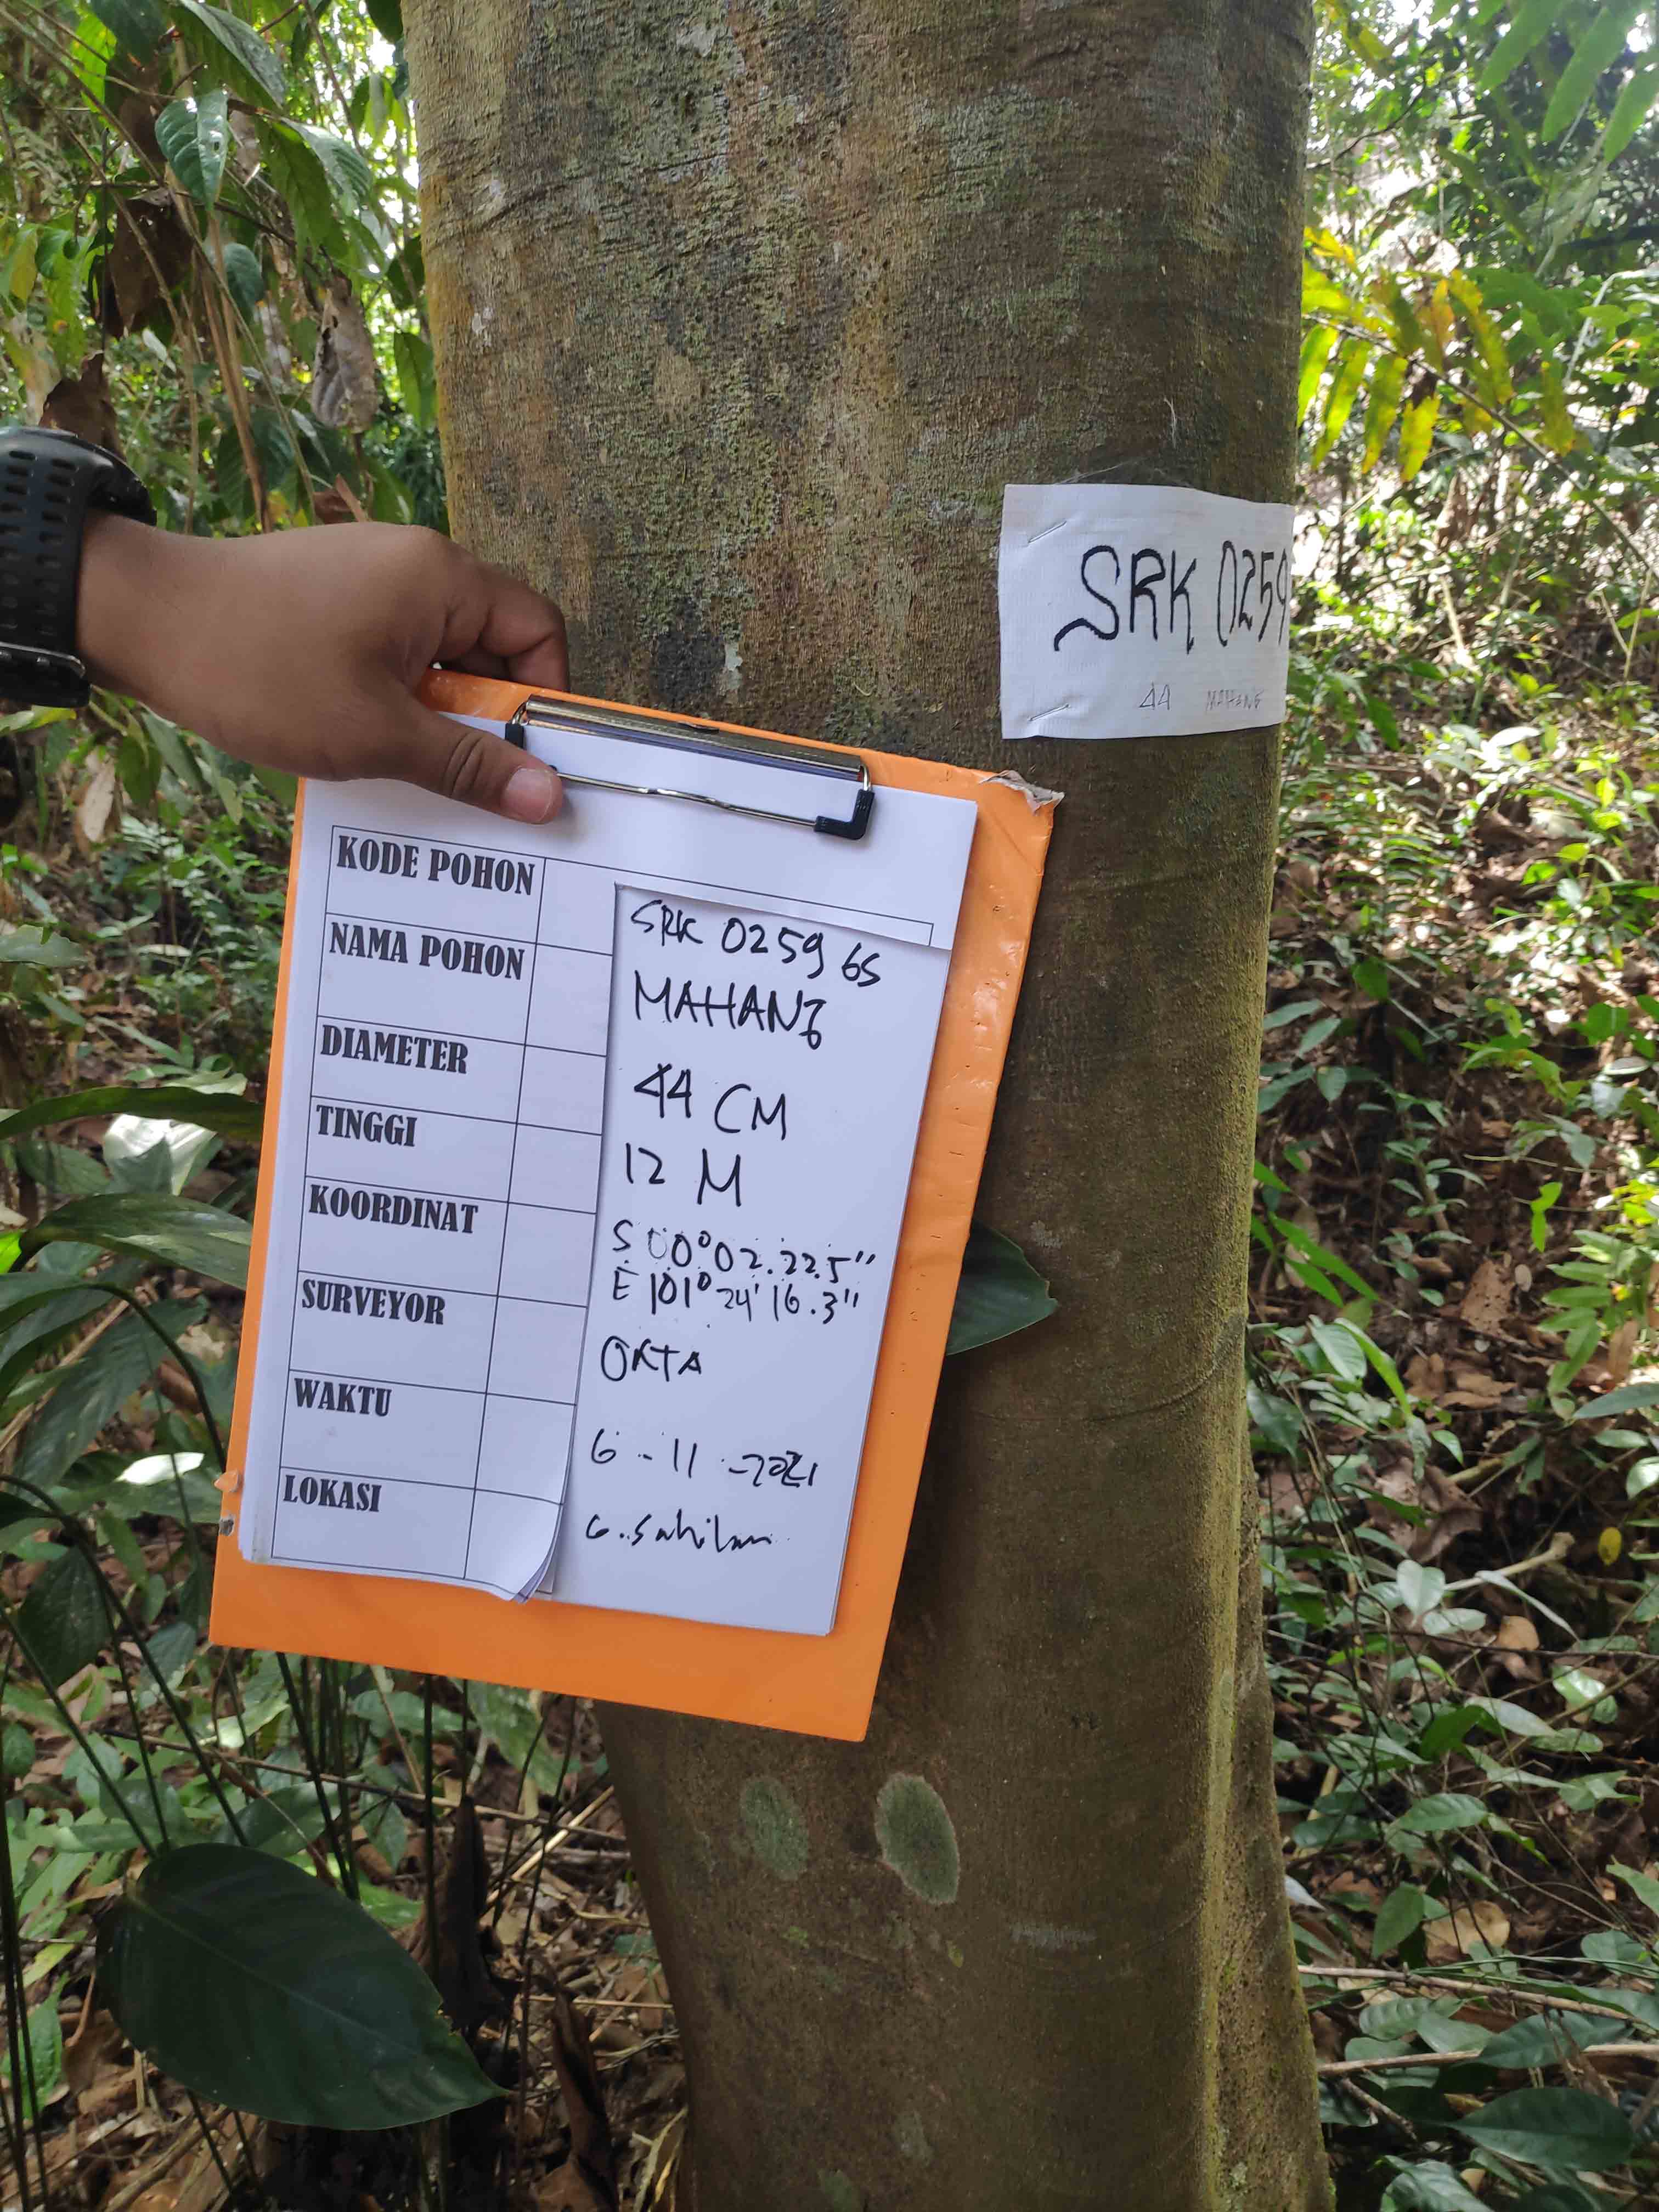 SRK 0259
44 MAHANG
KODE POHON SRK 0259 65
NAMA POHON MAHANG
DIAMETER 44 CM
TINGGI 12 M
KOORDINAT S 00° 02. 22.5"
E 101° 24' 16.3"
SURVEYOR OKTA
WAKTU 6 - 11 - 2021
LOKASI G. Sahilan